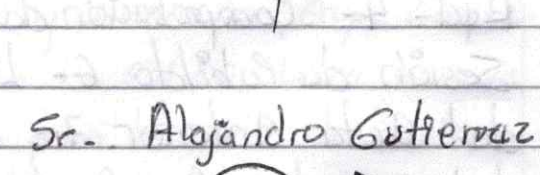 Sr. Alejandro Gutierrez